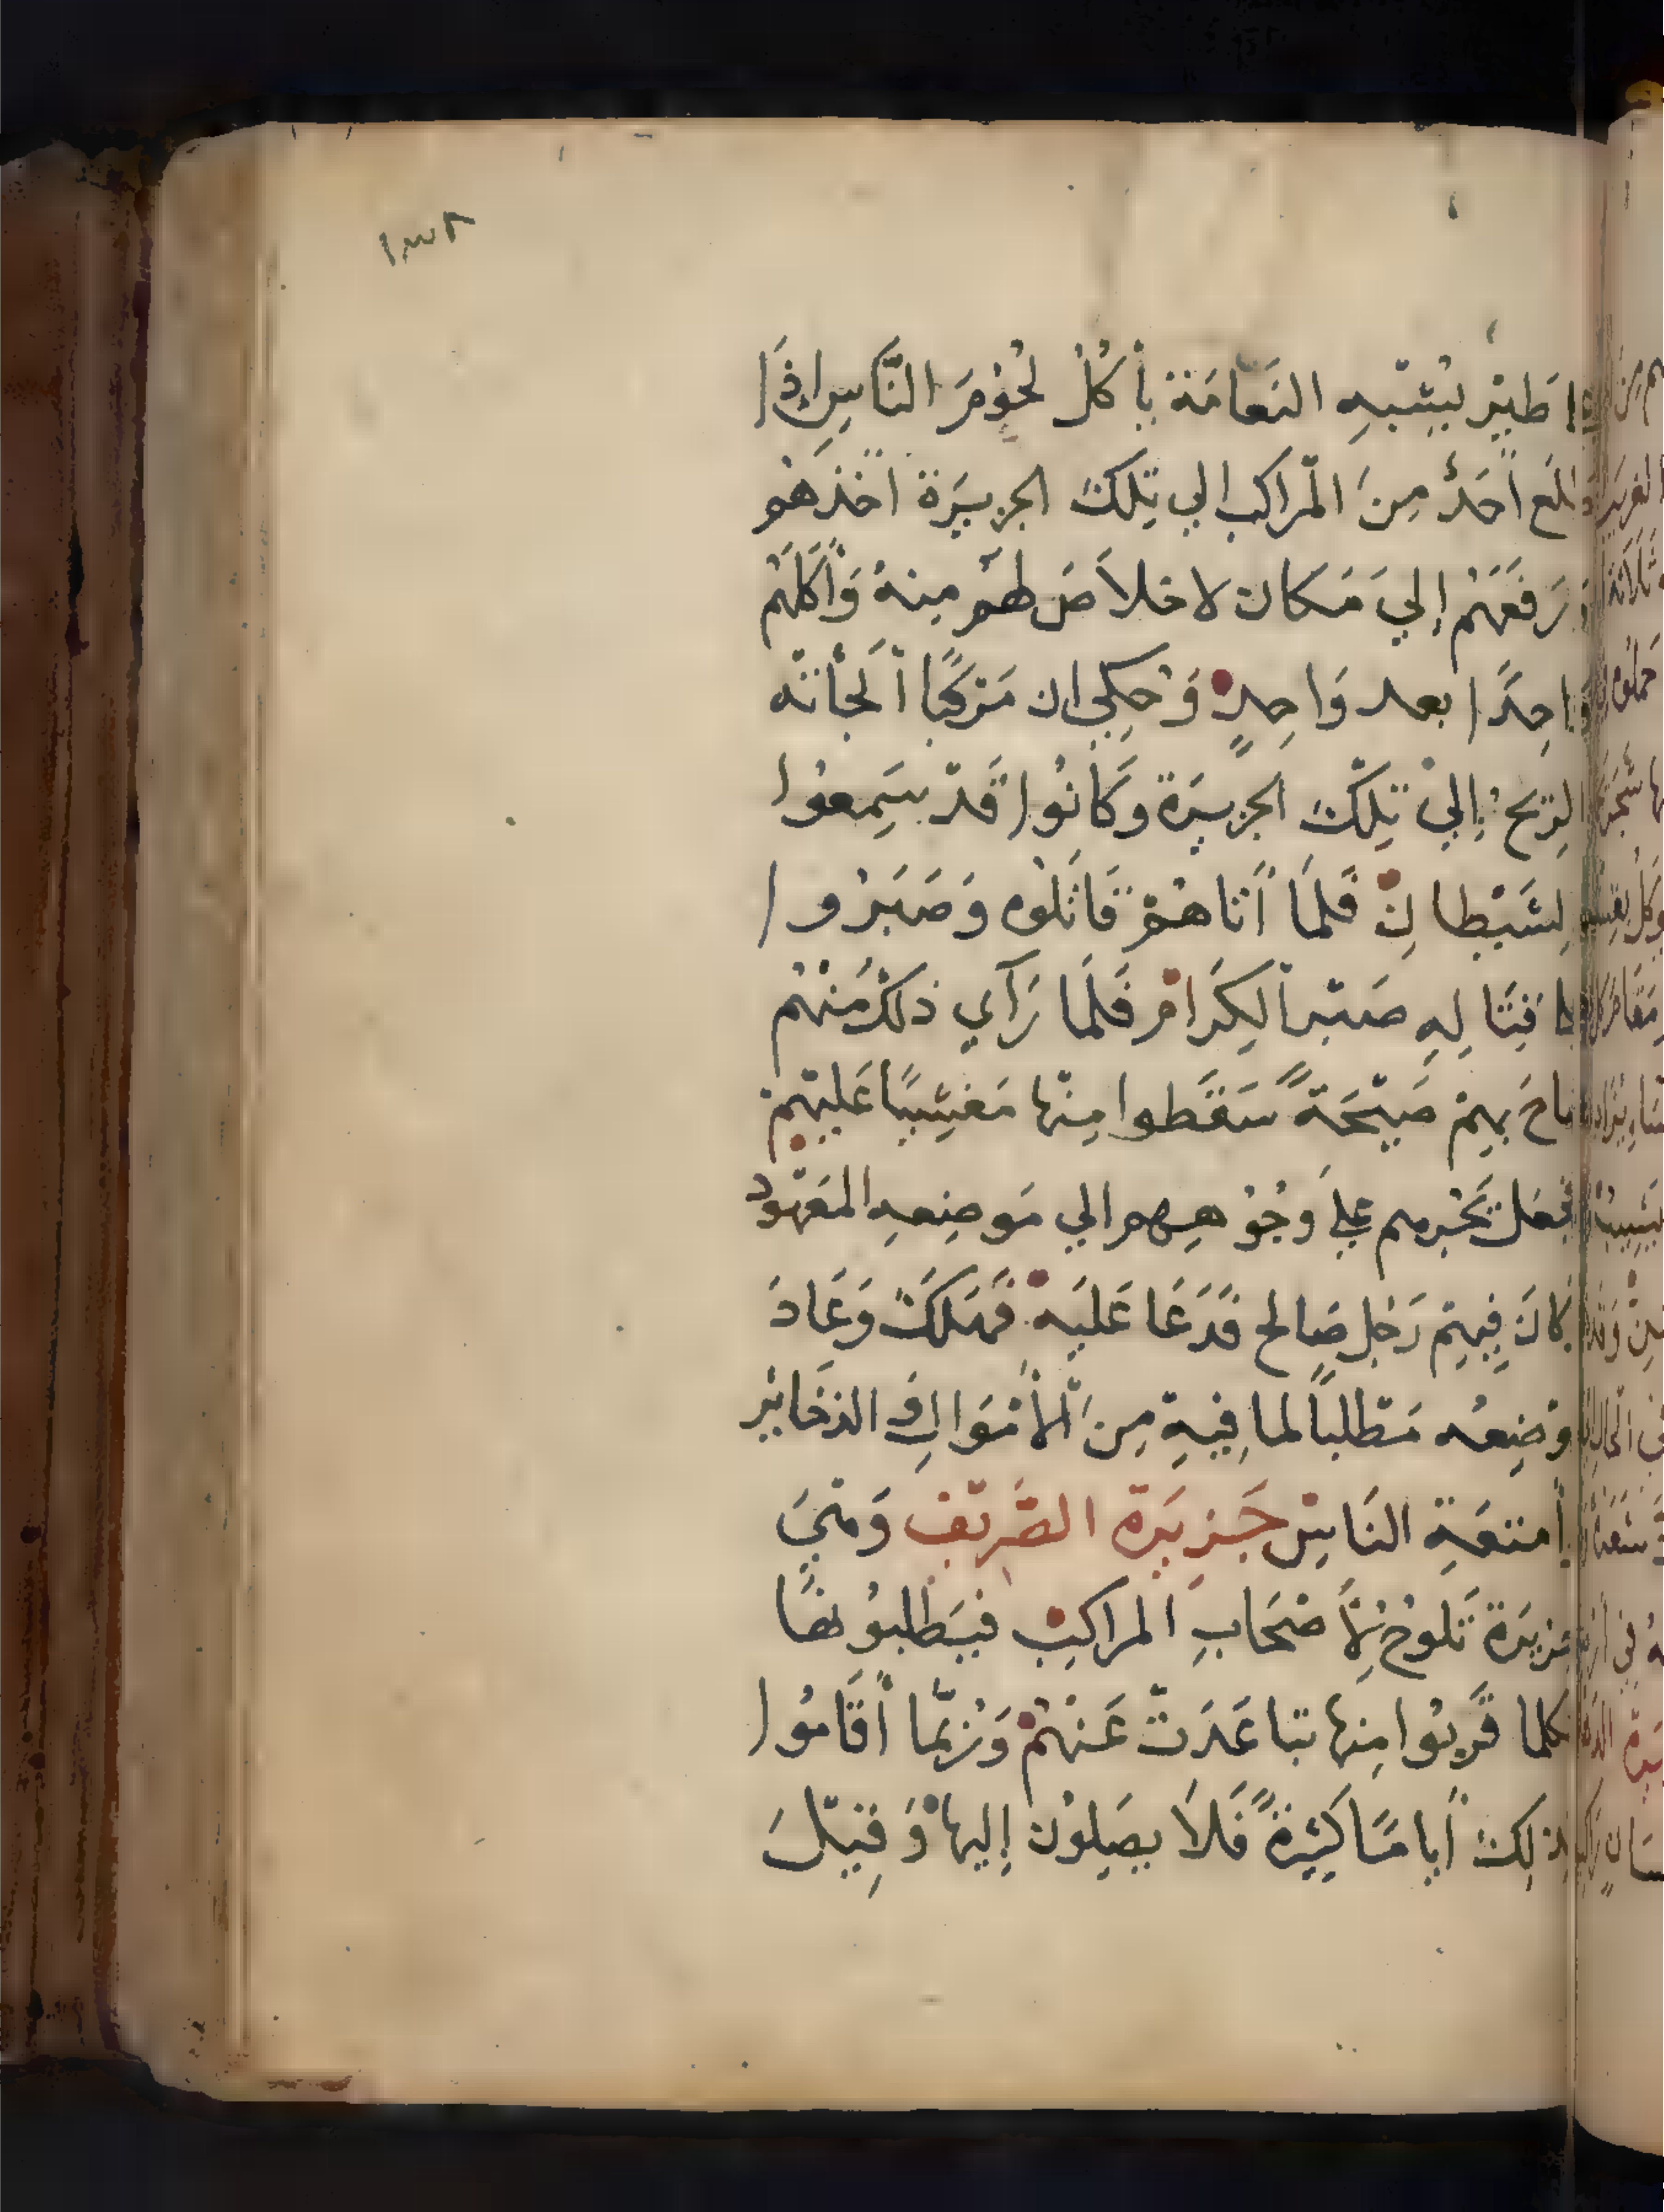 ١٣٢
طَيْر يُشبِه النَعَامَة يأكُل لحُوْمَ النَّاسِ إِذَا
أحَدٌ مِنَ المَراكب الي تِلكَ الجزيرَة اخذهمْ
رَفَعَهُمْ إلي مَكان لا خلاَصَ لهُم مِنهُ وَأَكَلَهُم
وَاحِدًا بعد وَاحِدٍ وَحكِي ان مَرْكبًا ألجأته
الرّيحُ إليْ تِلكَ الجزيرَة وَكَانُوا قَدْ سَمِعُوا
لشَيْطانِ فَلمَا أتاهُمْ قاتَلُوه وَصَبَرُوا
قِتَالِهِ صَبْرَ الكِرَامْ فَلَمَا رَآي ذلكَ مِنْهُم
صاحَ بِهِمْ صَيْحَةً سَقَطوا مِنْها مَغشِيًا عَليْهِمْ
فجعَل يَجُرهم عليَ وُجُوْهِهِم الي مَوضِعِهِ المَعْهُود
كانَ فِيهِم رَجُل صَالح فَدَعَا عَليَهْ فهَلكَ وَعَادَ
مَوْضِعُه مَطلبًا لما فِيهِ مِنَ الأَمْوَالِ وَ الذخَاير
أمتعَةِ النَاسْ جَزيرَة الصَّريف وَهيَ
جزيرَة تَلوُحْ لِأَصْحَابِ المراكبْ فيَطلبُونهَا
كلما قَربُوا مِنها تباعَدَتْ عَنْهُمْ وَرُبَّما أقَامُوا
لذلكَ أيامًا كَثِيرَةً فَلاَ يصَلِوْن إليهاْ وَقِيْلَ